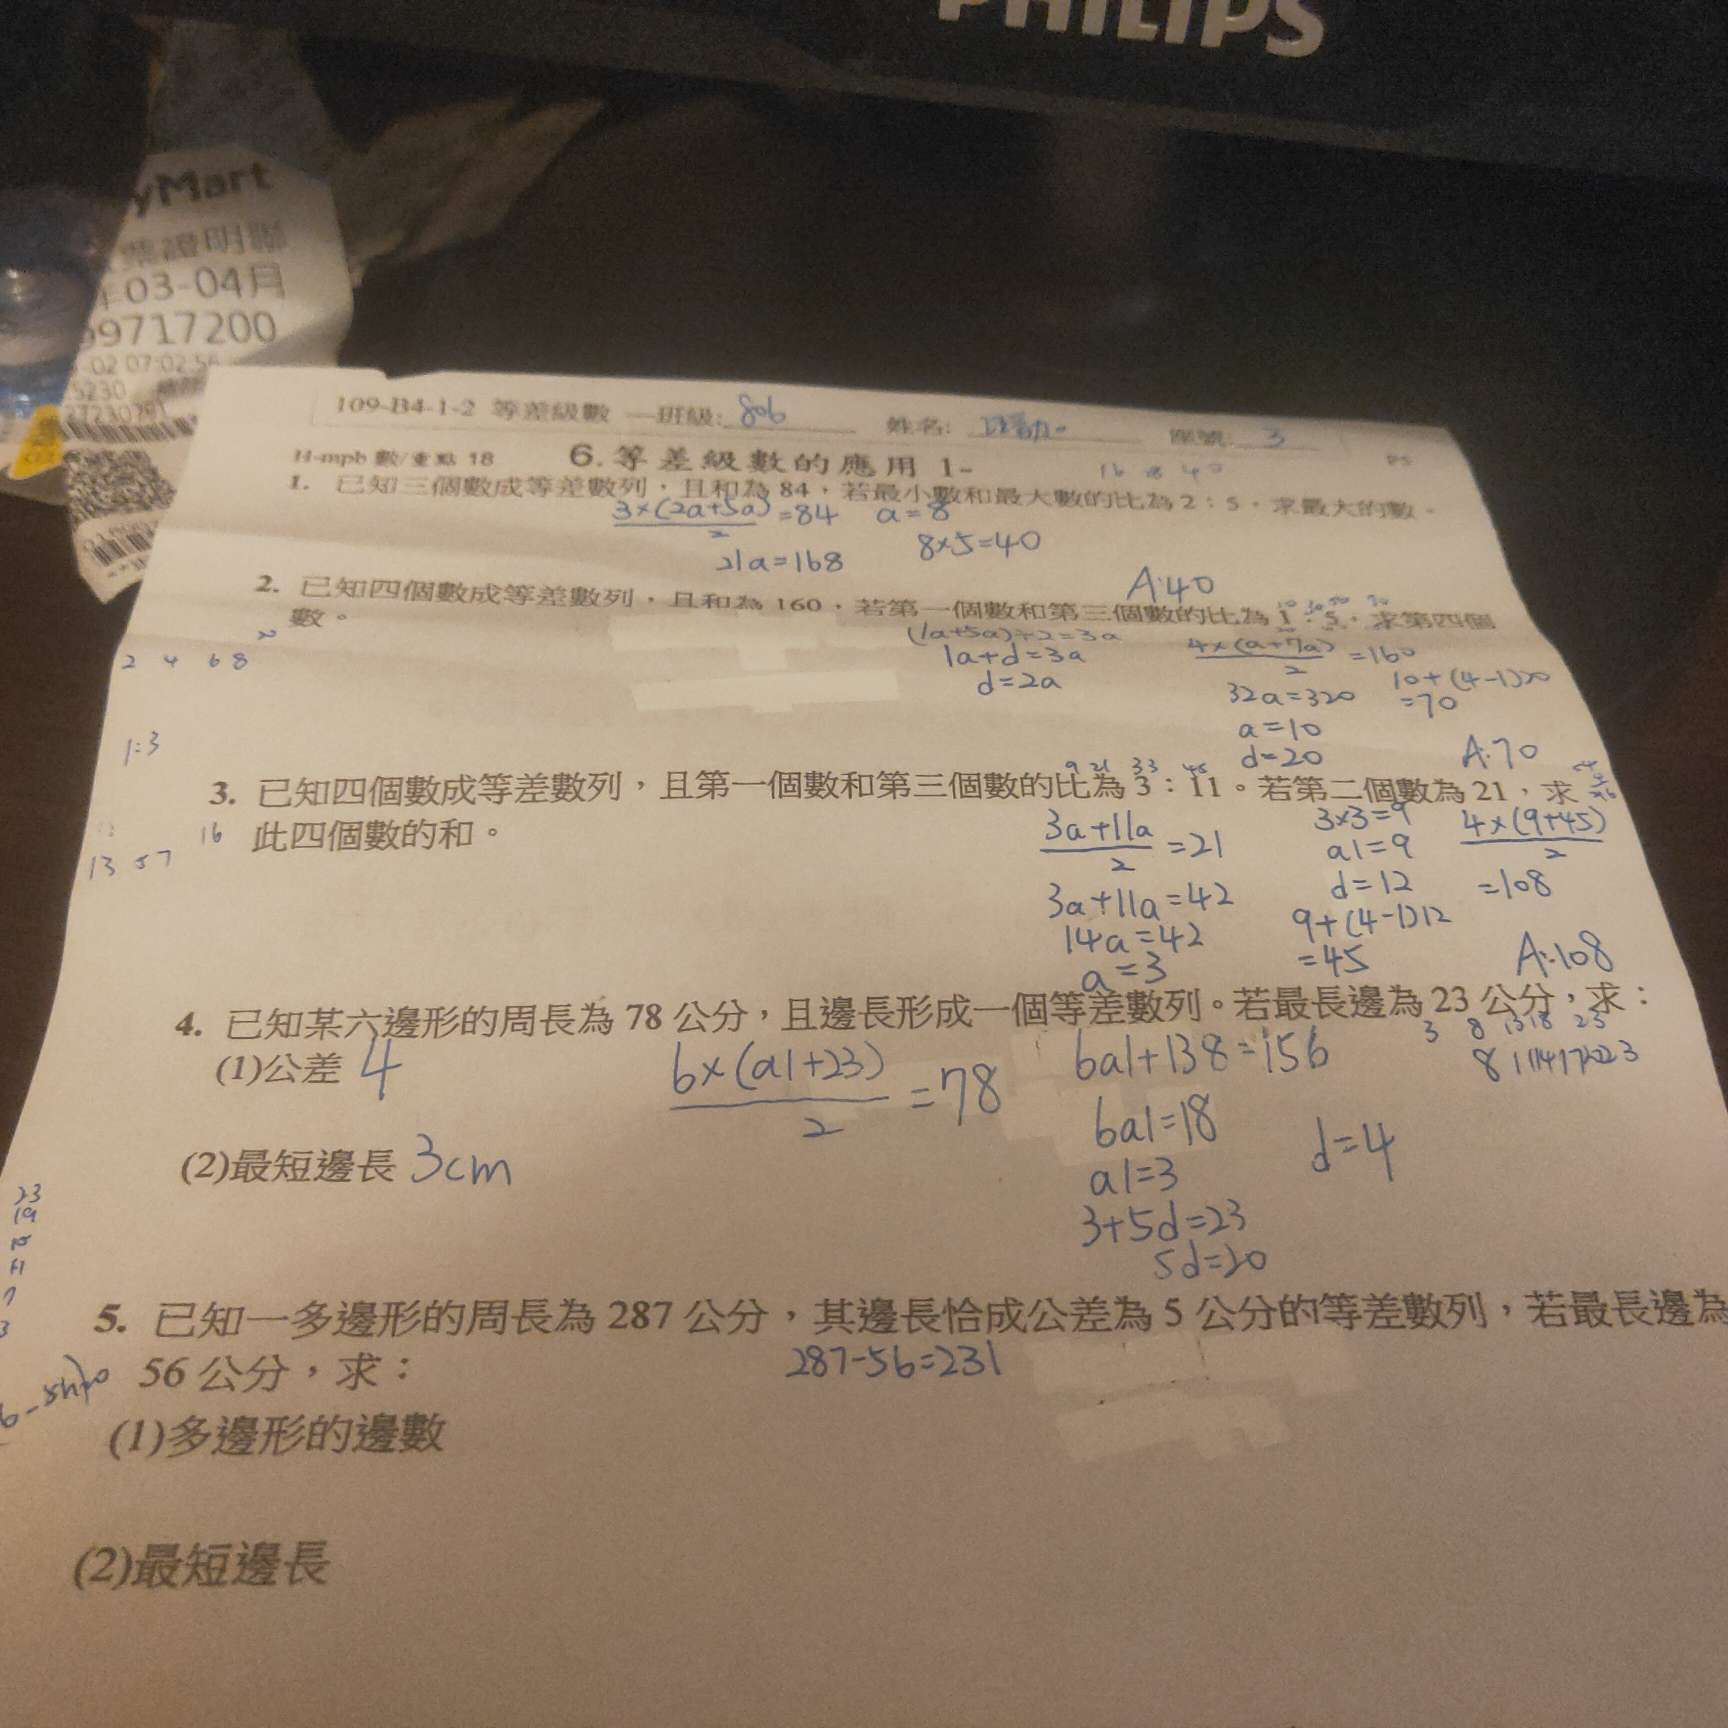 PHILIPS
yMart
票證明聯
03-04月
99717200
-02 07:02:56
5230
27230791
109-B4-1-2 等差級數 —班級: 806 姓名: 座號: 3
H-mpb 數/重點 18 6.等差級數的應用 1-
16 28 40
1. 已知三個數成等差數列，且和為 84，若最小數和最大數的比為 2：5，求最大的數。
3×(2a+5a)/2 =84 a=8
21a=168 8×5=40
A:40
2. 已知四個數成等差數列，且和為 160，若第一個數和第三個數的比為 1：5，求第四個
數。
(1a+5a)÷2=3a 4×(a+7a)/2 =160
2 4 6 8
1a+d=3a
d=2a 32a=320 10+(4-1)20
=70
a=10
1:3 d=20 A:70
9 21 33 45
3. 已知四個數成等差數列，且第一個數和第三個數的比為 3：11。若第二個數為 21，求
16 此四個數的和。
13 57
3a+11a/2 =21 3×3=9 4×(9+45)/2
a1=9
3a+11a=42 d=12 =108
14a=42 9+(4-1)12
a=3 =45 A:108
4. 已知某六邊形的周長為 78 公分，且邊長形成一個等差數列。若最長邊為 23 公分，求：
3 8 13 18 23
(1)公差 4 6×(a1+23)/2 =78 6a1+138=156 8 11 14 17 20 23
6a1=18
(2)最短邊長 3cm a1=3 d=4
3+5d=23
5d=20
23
19
15
11
7
3
5. 已知一多邊形的周長為 287 公分，其邊長恰成公差為 5 公分的等差數列，若最長邊為
56 公分，求： 287-56=231
(1)多邊形的邊數
(2)最短邊長